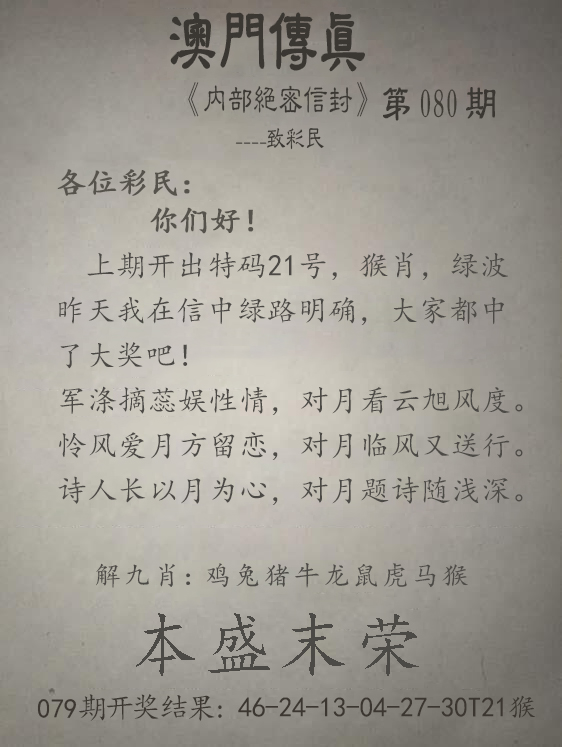 澳門傳眞
《内部絕密信封》第080期
----致彩民
各位彩民：
你们好！
上期开出特码21号，猴肖，绿波
昨天我在信中绿路明确，大家都中
了大奖吧！
军涤摘蕊娱性情，对月看云旭风度。
怜风爱月方留恋，对月临风又送行。
诗人长以月为心，对月题诗随浅深。
解九肖：鸡兔猪牛龙鼠虎马猴
本盛末荣
079期开奖结果：46-24-13-04-27-30T21猴